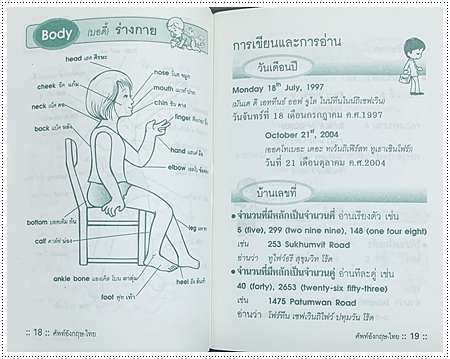 Body (บอดี้) ร่างกาย
head เฮด ศีรษะ
nose โนส จมูก
cheek ชีค แก้ม
mouth เมาท์ ปาก
neck เน็ค คอ
chin ชิน คาง
finger ฟิงเกอะ นิ้ว
back แบ็ค หลัง
hand แฮนด์ มือ
elbow เอลโบ ข้อศอก
bottom บอตเติ้ม ก้น
leg เลก ขา
calf คาล์ฟ น่อง
ankle bone แองเคิ่ล โบน ตาตุ่ม
heel ฮีล ส้นเท้า
foot ฟุท เท้า
:: 18 :: ศัพท์อังกฤษ-ไทย
การเขียนและการอ่าน
วันเดือนปี
Monday 18th July, 1997
(มันเด ดิ เอททีนธ์ ออฟ จูไล ไนน์ทีนไนน์ทีเซฟเว่น)
วันจันทร์ที่ 18 เดือนกรกฎาคม ค.ศ.1997
October 21st, 2004
(ออคโทเบอะ เดอะ ทเว้นถิเฟิร์สท ทูเธาเซินโฟร์)
วันที่ 21 เดือนตุลาคม ค.ศ.2004
บ้านเลขที่
● จำนวนที่มีหลักเป็นจำนวนคี่ อ่านเรียงตัว เช่น
5 (five), 299 (two nine nine), 148 (one four eight)
เช่น 253 Sukhumvit Road
อ่านว่า ทูไฟว์ธรี สุขุมวิท โร้ด
● จำนวนที่มีหลักเป็นจำนวนคู่ อ่านทีละคู่ เช่น
40 (forty), 2653 (twenty-six fifty-three)
เช่น 1475 Patumwan Road
อ่านว่า โฟร์ทีน เซฟเว่นถิไฟว์ ปทุมวัน โร้ด
ศัพท์อังกฤษ-ไทย :: 19 ::